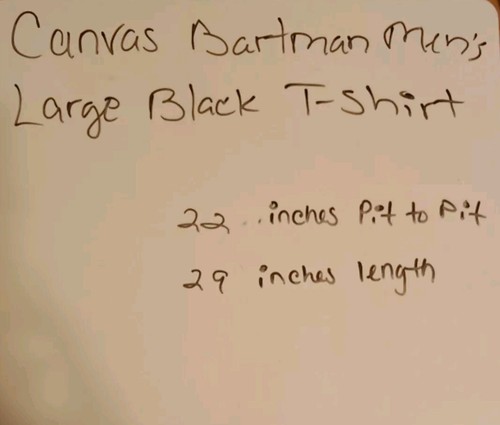 Canvas Bartman Men's
Large Black T-Shirt
22 inches Pit to Pit
29 inches length